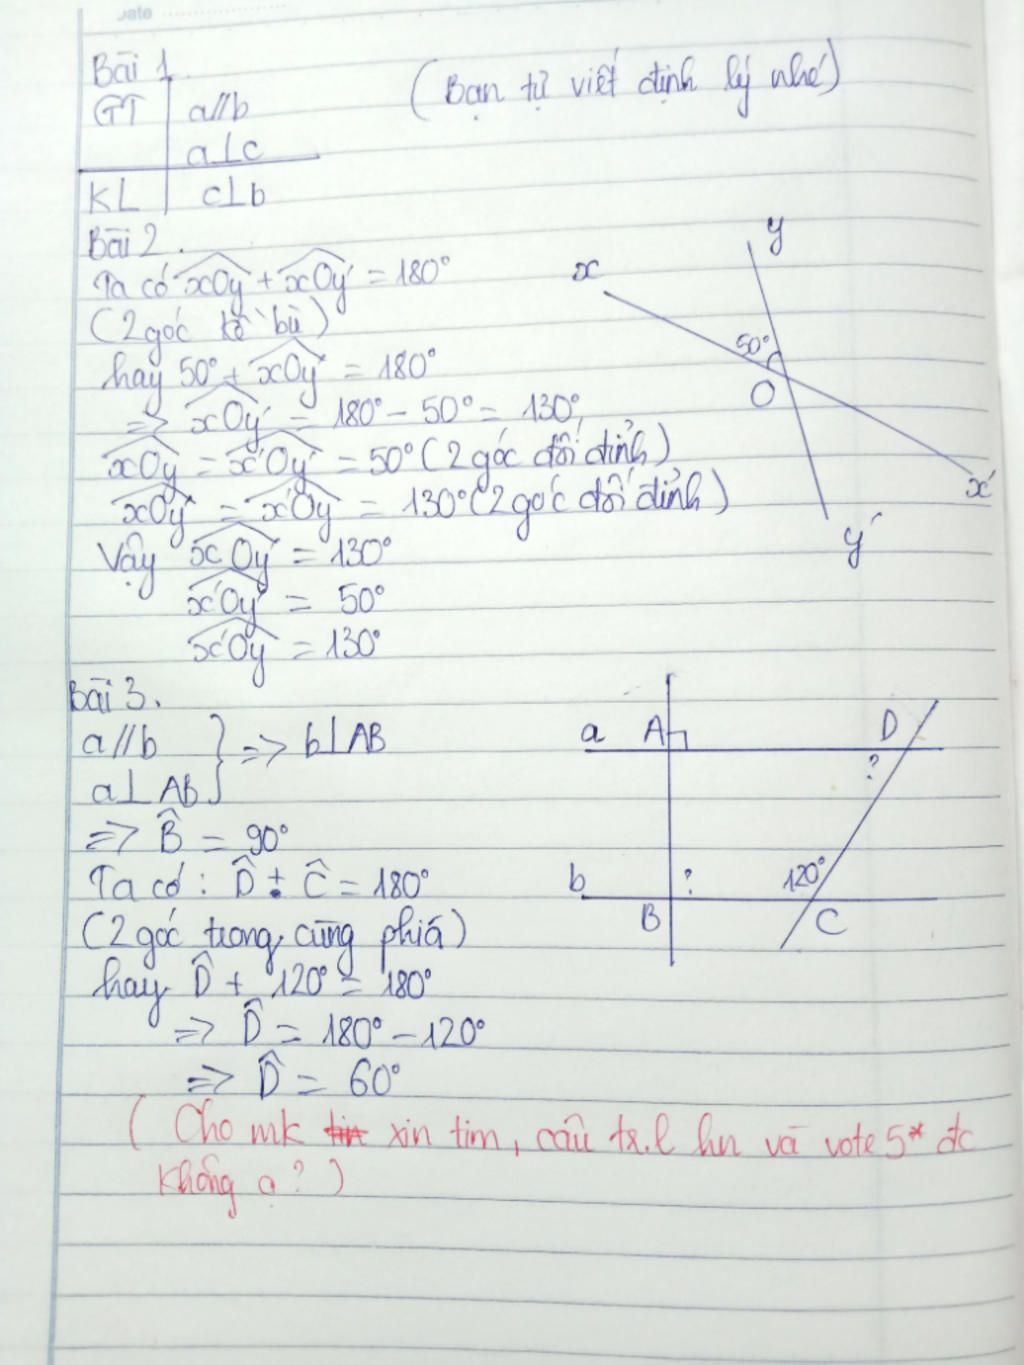 Date
Bài 1.
(Bạn tự viết định lý nhé)
GT a//b
a⊥c
KL c⊥b
Bài 2.
Ta có xOy + xOy' = 180°
(2 góc kề bù)
hay 50° + xOy' = 180°
=> xOy' = 180° - 50° = 130°
xOy = x'Oy' = 50° (2 góc đối đỉnh)
xOy' = x'Oy = 130° (2 góc đối đỉnh)
Vậy xOy' = 130°
x'Oy' = 50°
x'Oy = 130°
x
y
50°
O
x'
y'
Bài 3.
a//b
a⊥AB } => b⊥AB
=> B̂ = 90°
Ta có: D̂ + Ĉ = 180°
(2 góc trong cùng phía)
hay D̂ + 120° = 180°
=> D̂ = 180° - 120°
=> D̂ = 60°
a A D
?
b ? 120°
B C
(Cho mk xin tim, câu tr.l hn và vote 5* đc
không ạ?)